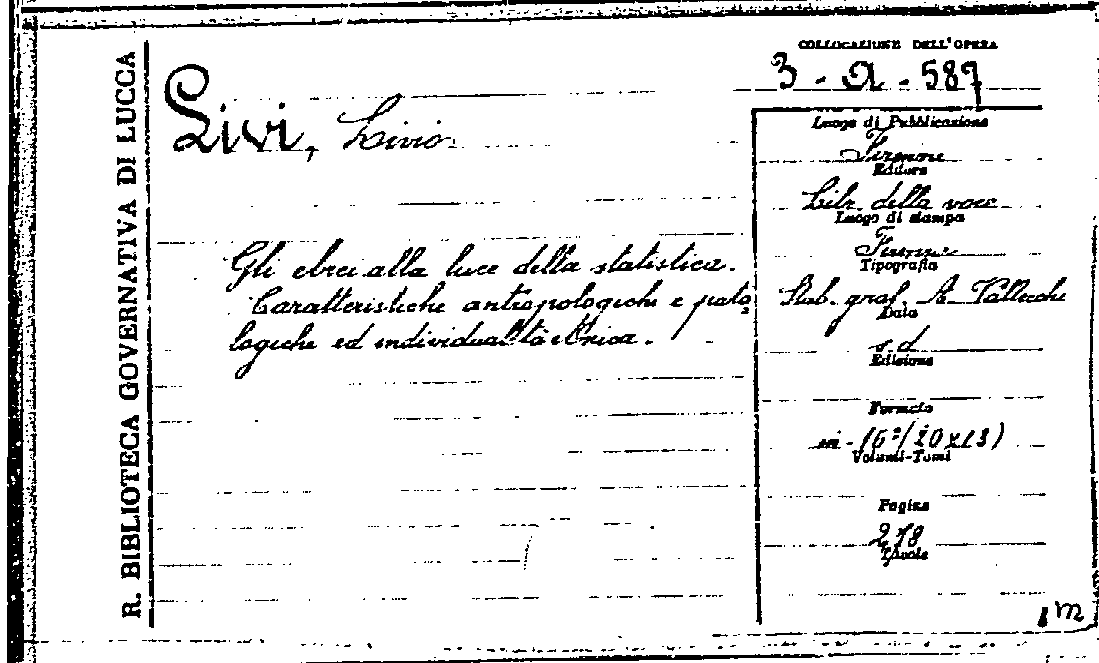 R. BIBLIOTECA GOVERNATIVA DI LUCCA
Livi, Livio
Gli ebrei alla luce della statistica.
Caratteristiche antropologiche e pato
logiche ed individualità etnica.
COLLOCAZIONE DELL'OPERA
3 - a - 587
Luogo di Pubblicazione
Firenze
Editore
Libr. della voce
Luogo di stampa
Firenze
Tipografia
Stab. graf. A. Vallecchi
Data
s.d
Edizione
Formato
in-16º (20x13)
Volumi-Tomi
Pagine
278
Tavole
m